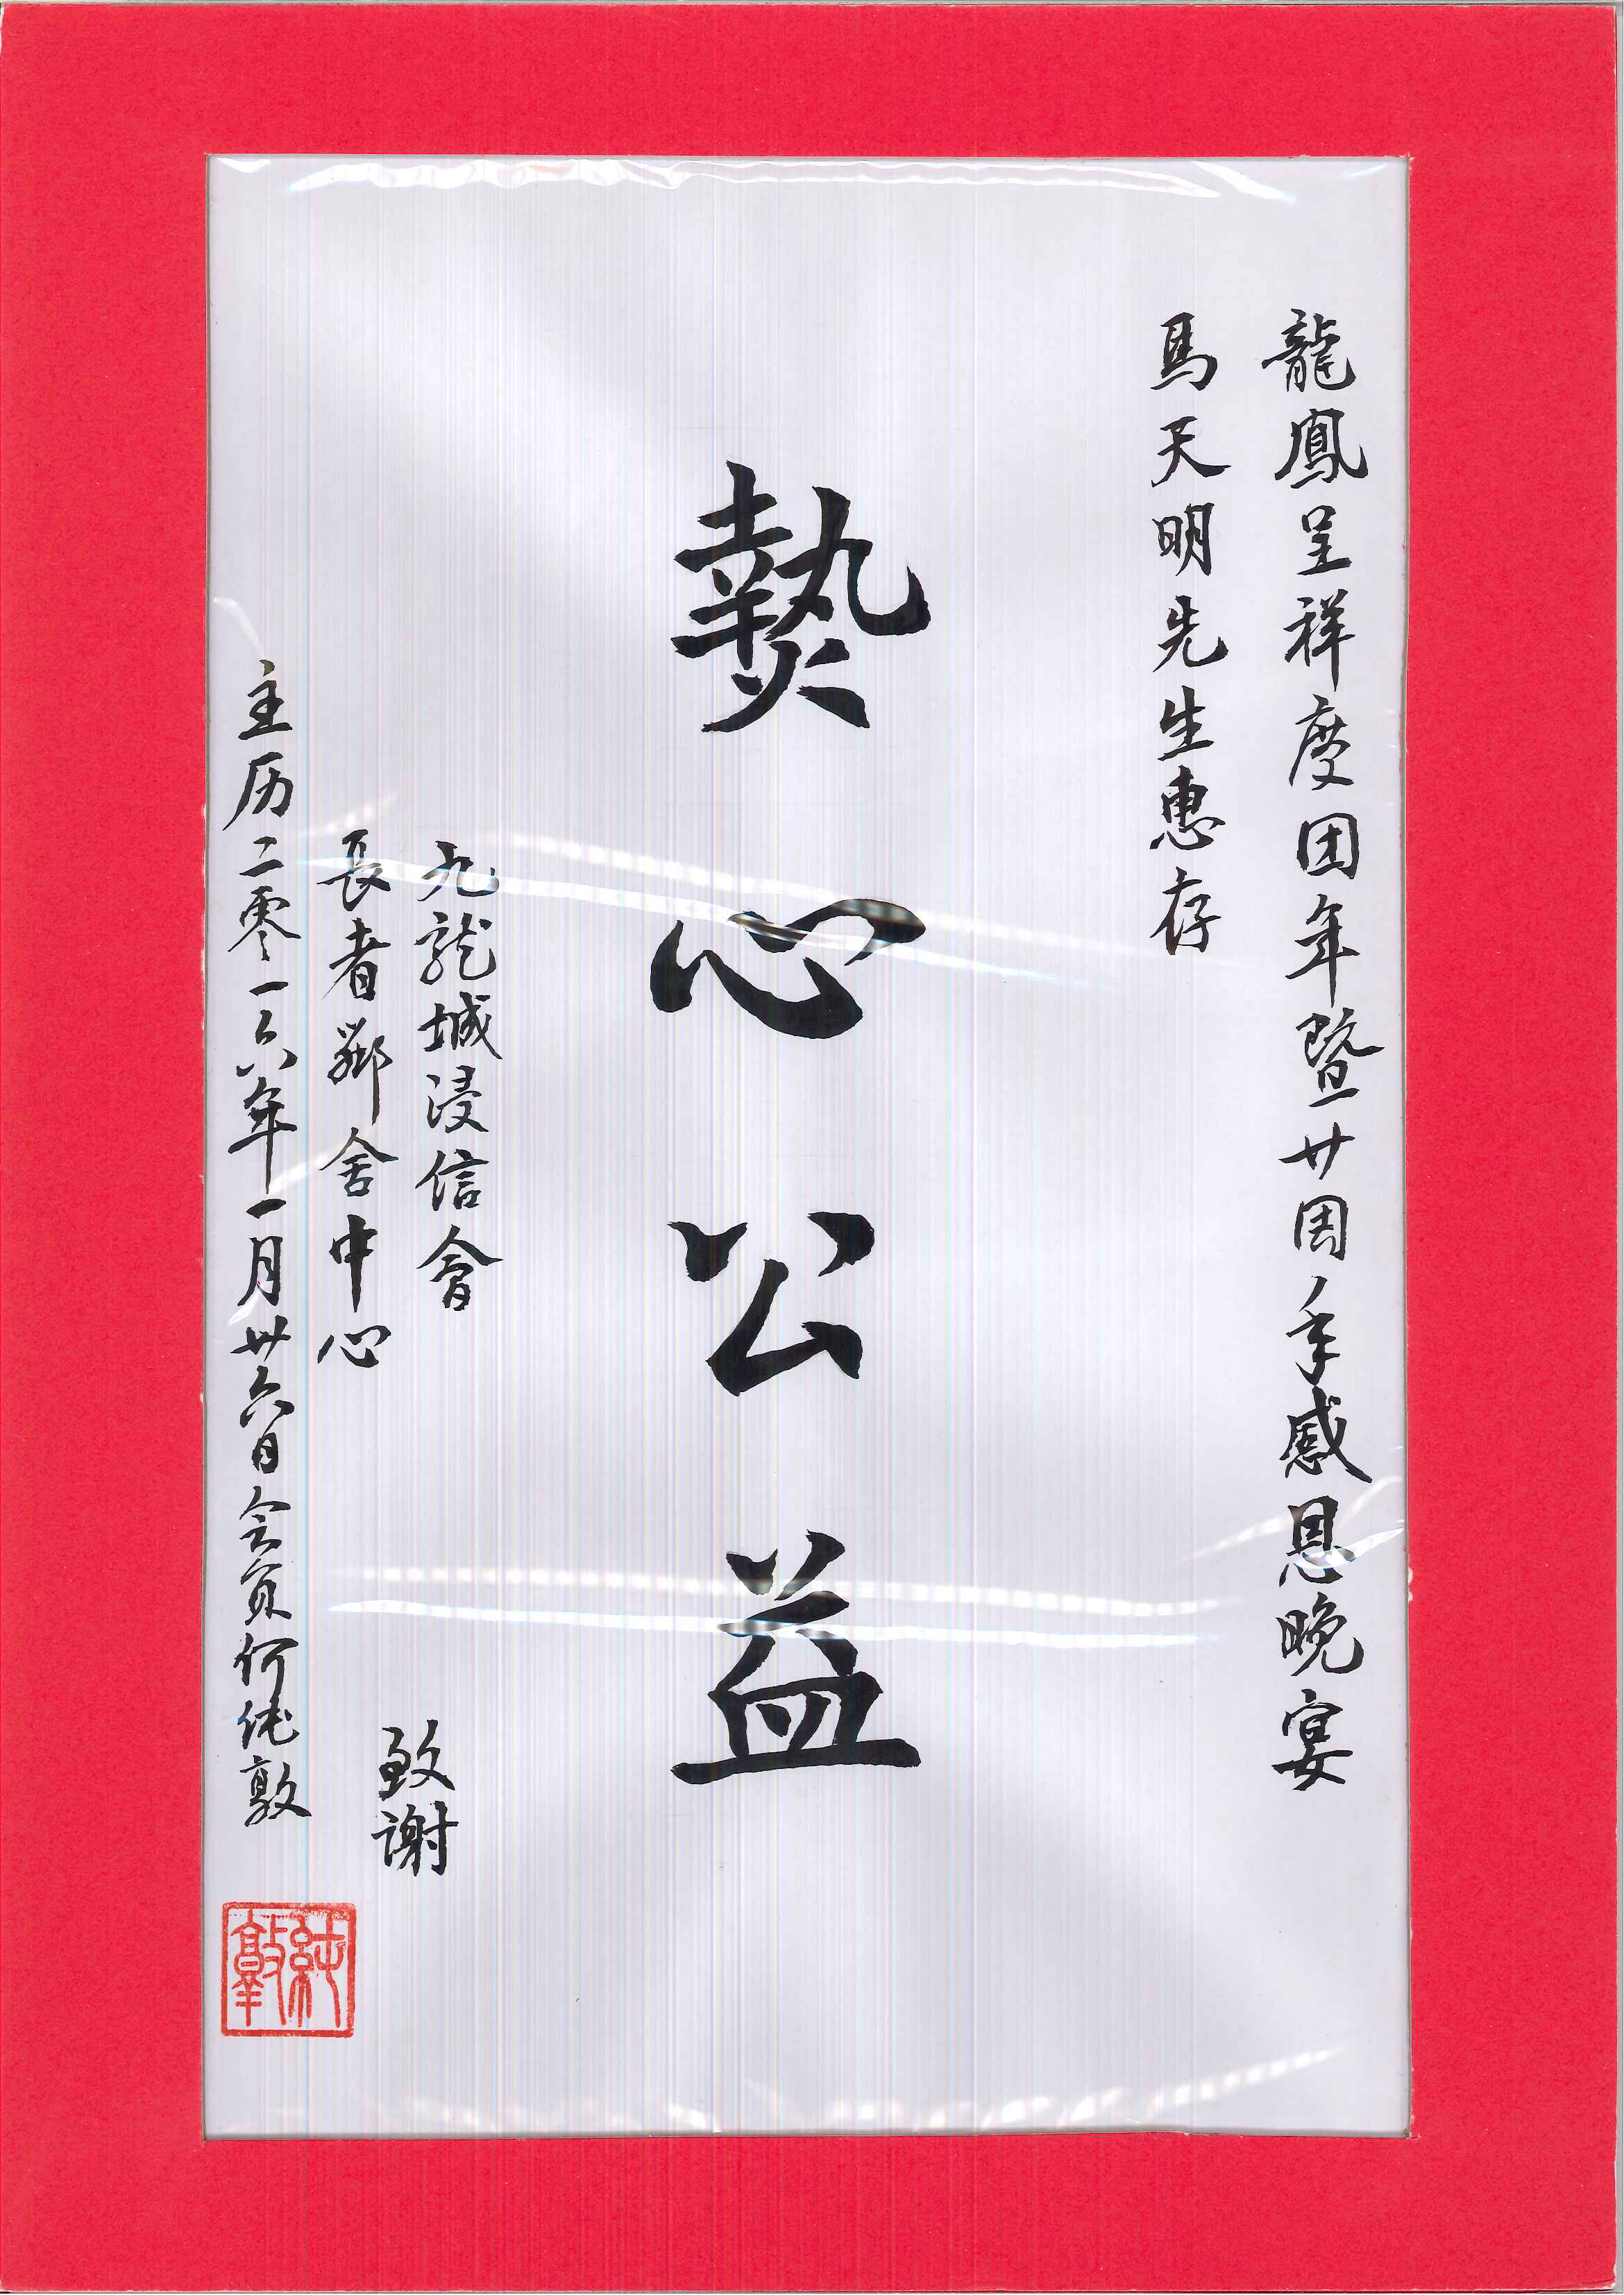 龍鳳呈祥度团年暨廿周年感恩晚宴
馬天明先生惠存
熱心公益
九龍城浸信會
長者鄰舍中心
致谢
主历二零一六年一月廿六日会员何纯敦
純敦